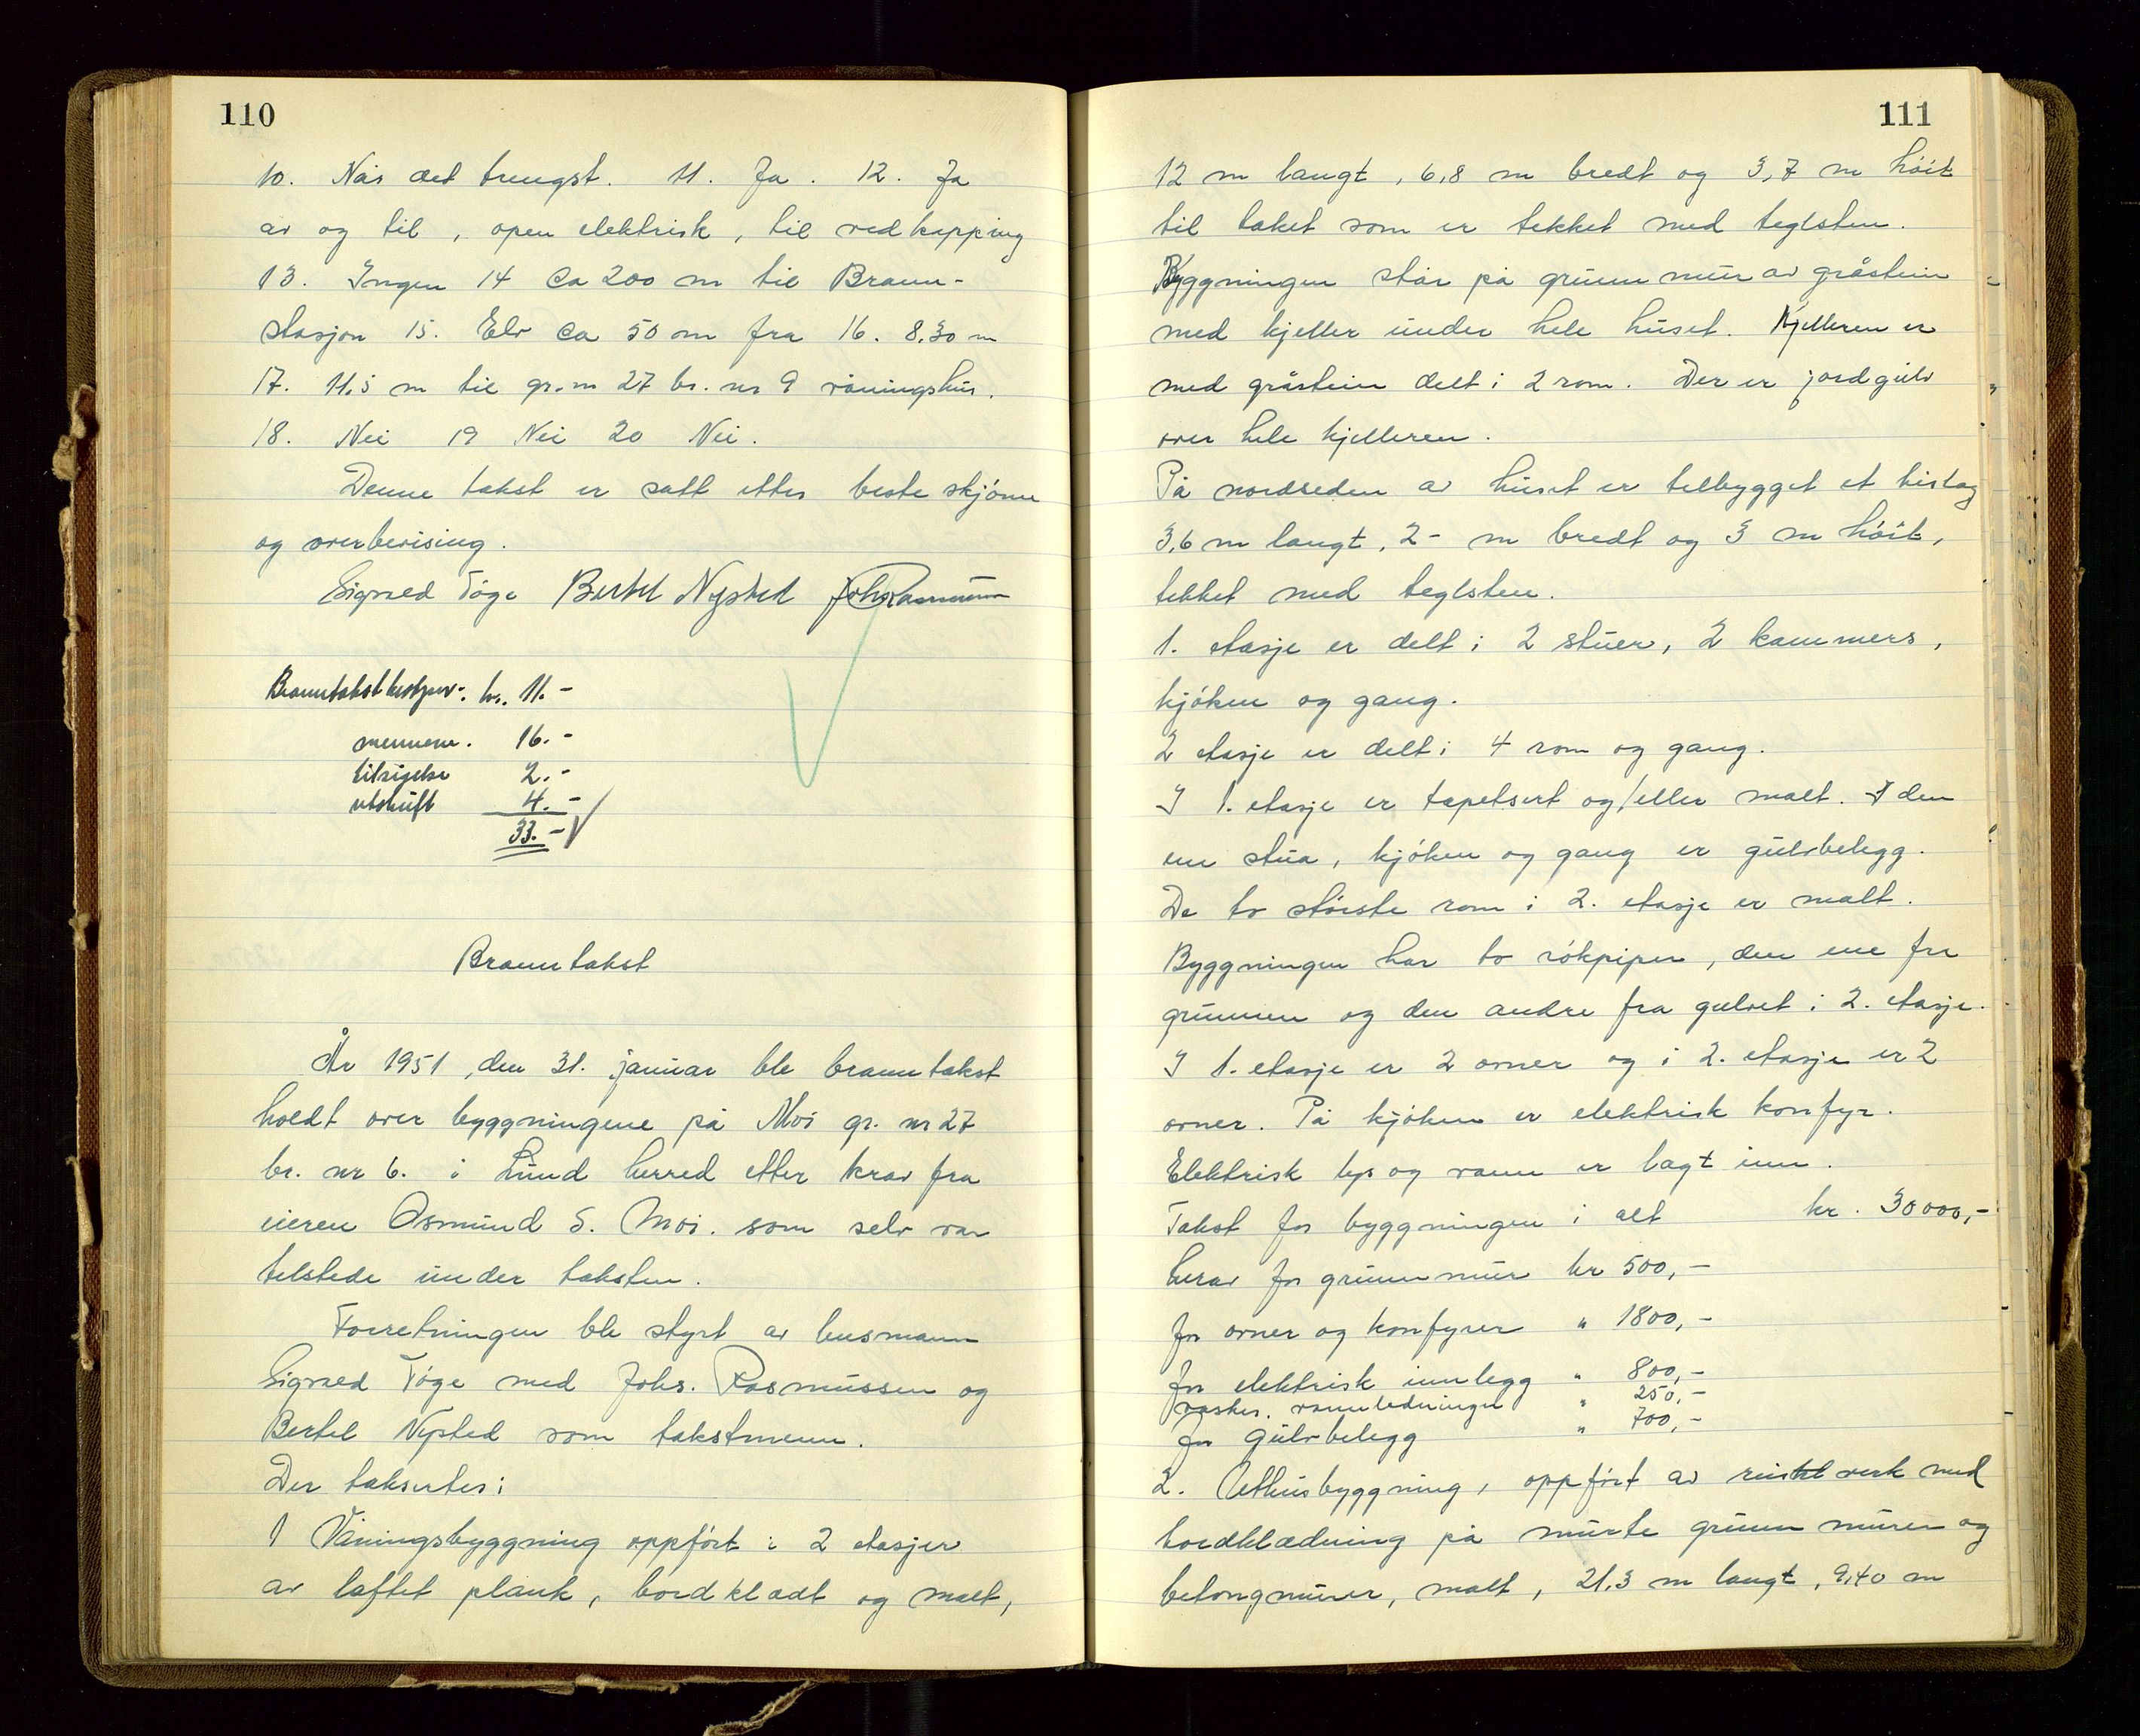 110
10. Når det trengst. 11. Ja. 12. Ja
av og til, open elektrisk, til vedkapping
13. Ingen 14 Ca 200 m til Brann-
stasjon 15. Elv ca 50 m fra 16. 8.30 m
17. 11.5 m til gr. nr 27 br. nr 9 våningshus.
18. Nei 19 Nei 20 Nei.
Denne takst er satt etter beste skjønn
og overbevising.
Sigvald Tøge Bertel Nysted Joh Rasmussen
Branntakstbestyrer. kr. 11.-
mennene. 16.-
tilsigelse 2.-
utskrift 4.-
33.-
Branntakst
År 1951, den 31. januar ble branntakst
holdt over byggningene på Moi gr. nr 27
br. nr 6. i Lund herred etter krav fra
eieren Osmund S. Moi. som selv var
tilstede under taksten.
Forretningen ble styrt av lensmann
Sigvald Tøge med Johs. Rasmussen og
Bertel Nysted som takstmenn.
Der taksertes:
1 Våningsbyggning oppført i 2 etasjer
av laftet plank, bordkledt og malt,
111
12 m langt, 6,8 m bredt og 3,7 m høit
til taket som er tekket med teglsten.
Byggningen står på grunnmur av gråstein
med kjeller under hele huset. Kjelleren er
med gråstein delt i 2 rom. Der er jordgulv
over hele kjelleren.
På nordsiden av huset er tilbygget et bislag
3,6 m langt, 2- m bredt og 3 m høit,
tekket med teglsten.
1. etasje er delt i 2 stuer, 2 kammers,
kjøken og gang.
2 etasje er delt i 4 rom og gang.
I 1. etasje er tapetsert og/eller malt. I den
ene stua, kjøken og gang er gulvbelegg.
De to største rom i 2. etasje er malt.
Byggningen har to rökpiper, den ene fra
grunnen og den andre fra gulvet i 2. etasje.
I 1. etasje er 2 ovner og i 2. etasje er 2
ovner. På kjøken er elektrisk komfyr.
Elektrisk lys og vann er lagt inn.
Takst for byggningen i alt kr. 30000,-
herav for grunnmur kr 500,-
for ovner og komfyrer " 1800,-
for elektrisk innlegg " 800,-
vasker. vannledninger " 250,-
for gulvbelegg " 700,-
2. Uthusbyggning, oppført av reisverk med
bordkledning på murte grunnmurer og
betongmurer, malt, 21,3 m langt, 9,40 m